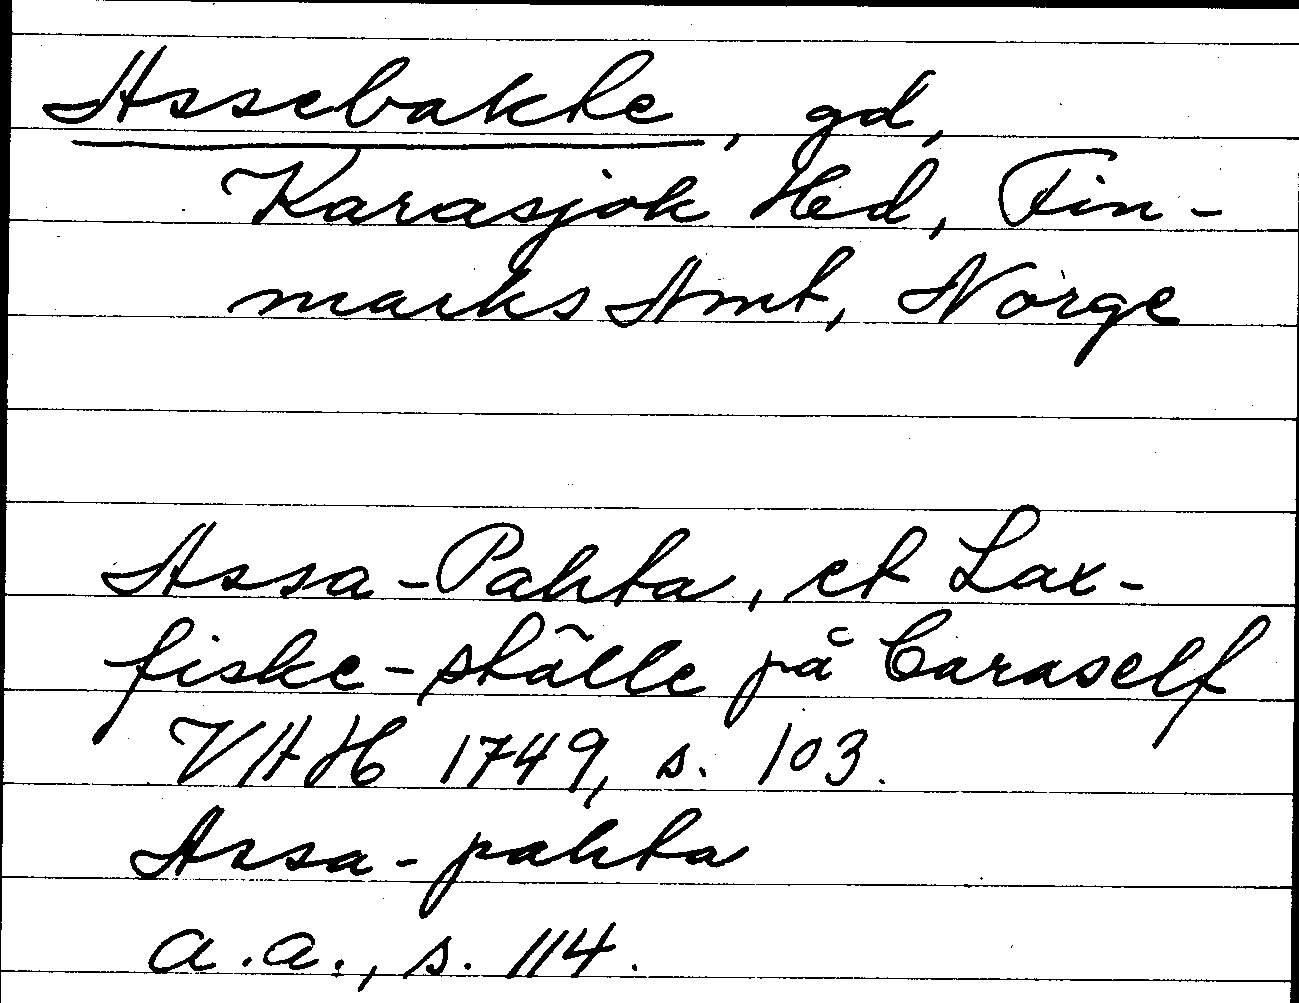 Assebakte, gd,
Karasjok Hed, Fin-
marks Amt, Norge
Assa-Pahta, et Lax-
fiske-ställe på Caraself
VAH 1749, s. 103.
Assa-pahta
a.a., s. 114.